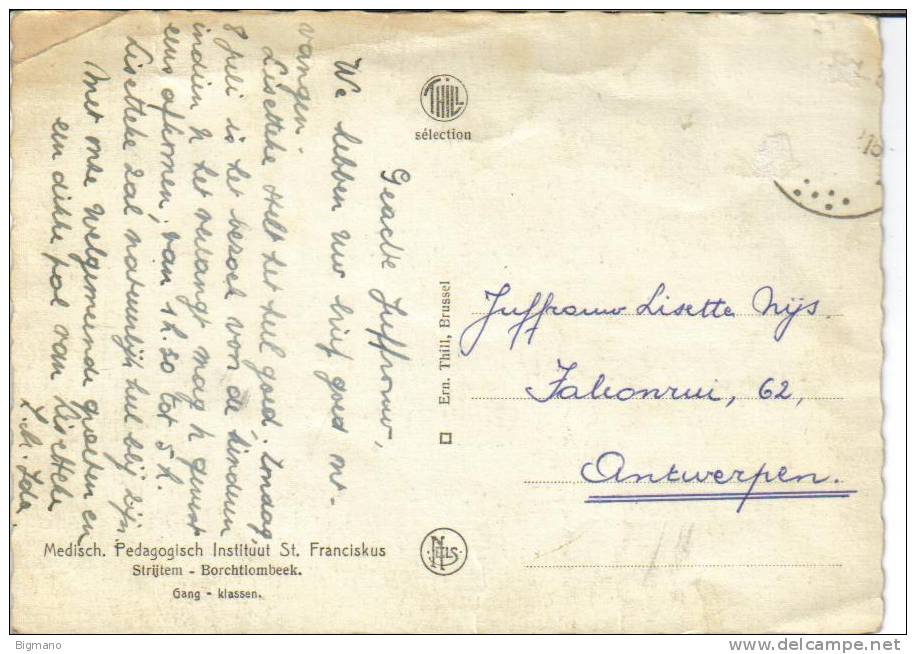 Geachte Juffrouw,
We hebben uw brief goed ont-
vangen
Lisetteke stelt het heel goed. Zondag
8 Juli is het bezoek voor de kinderen,
indien U het verlangt mag U gerust
eens afkomen, van 1h.30 tot 5 h.
Lisetteke zal natuurlijk heel blij zijn.
Met onze welgemeende groeten en
een dikke pol van Lisetteke
Z. M. Ida.
THILL
sélection
Ern. Thill, Brussel
NELS
Juffrouw Lisette Nijs.
Falconrui, 62,
Antwerpen.
Medisch. Pedagogisch Instituut St. Franciskus
Strijtem - Borchtlombeek.
Gang - klassen.
Bigmano
delcampe.net